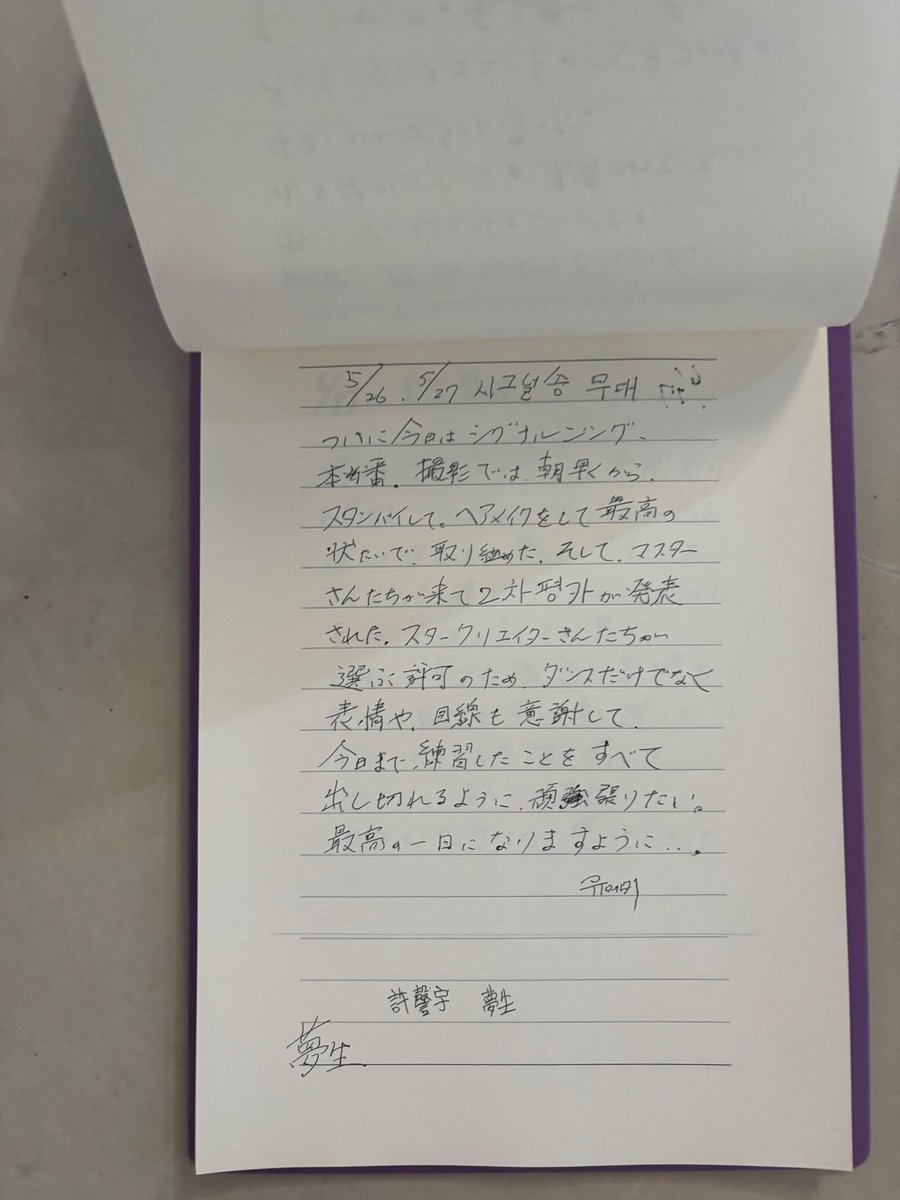 5/26. 5/27 시그널송 무대
ついに今日はシグナルソング、
本当番。撮影では、朝早くから、
スタンバイして。ヘアメイクをして最高の
状たいで、取り組めた。そして、マスター
さんたちが来て2차평가が発表
された。スタークリエイターさんたちが
選ぶ許可のため、ダンスだけでなく
表情や、目線も意謝して、
今日まで、練習したことをすべて
出し切れるように、頑張りたい。
最高の一日になりますように...。
許馨字 夢生
夢生